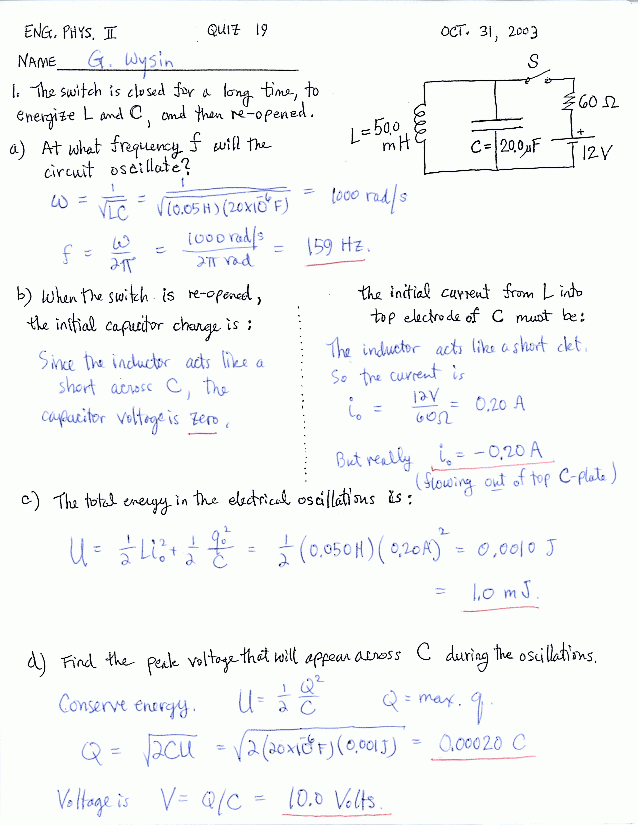 ENG. PHYS. II QUIZ 19 OCT. 31, 2003
NAME G. Wysin
1. The switch is closed for a long time, to
energize L and C, and then re-opened.
S
60 Ω
L=50.0
mH
C= 20.0μF
+
12V
a) At what frequency f will the
circuit oscillate?
ω = 1/√LC = 1/√(0.05H)(20x10⁻⁶F) = 1000 rad/s
f = ω/2π = 1000 rad/s / 2π rad = 159 Hz.
b) When the switch is re-opened,
the initial capacitor charge is :
Since the inductor acts like a
short across C, the
capacitor voltage is zero.
the initial current from L into
top electrode of C must be:
The inductor acts like a short ckt.
So the current is
i₀ = 12V/60Ω = 0.20 A
But really i₀ = -0.20 A
(flowing out of top C-plate)
c) The total energy in the electrical oscillations is :
U = 1/2 Li₀² + 1/2 q₀²/C = 1/2 (0.050H)(0.20A)² = 0.0010 J
= 1.0 mJ.
d) Find the peak voltage that will appear across C during the oscillations.
Conserve energy. U = 1/2 Q²/C Q = max. q.
Q = √2CU = √2(20x10⁻⁶F)(0.001J) = 0.00020 C
Voltage is V = Q/C = 10.0 Volts.